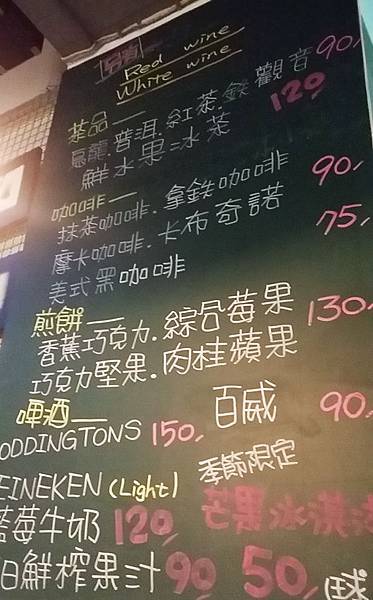 Red wine
White wine
茶品—
烏龍.普洱.紅茶.鐵觀音 90
鮮水果冰茶 120
咖啡—
抹茶咖啡.拿鉄咖啡 90
摩卡咖啡.卡布奇諾
美式黑咖啡 75
煎餅—
香蕉巧克力.綜合莓果 130
巧克力堅果.肉桂蘋果
啤酒—
百威 90
ODDINGTONS 150
EINEKEN (Light) 季節限定
藍莓牛奶 120 芒果冰淇
鮮榨果汁 90 50 球